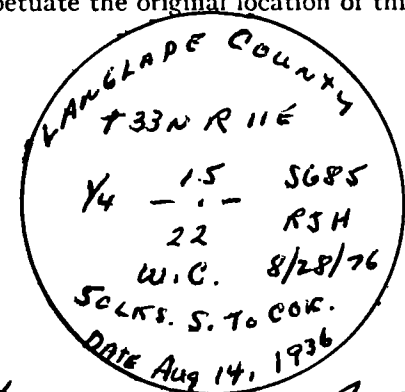 petuate the original location of thi
LANGLADE COUNTY
T 33 N R 11 E
1/4 15 S685
- . - RJH
22
W.C. 8/28/76
50 LKS. S. TO COR.
DATE Aug 14, 1936